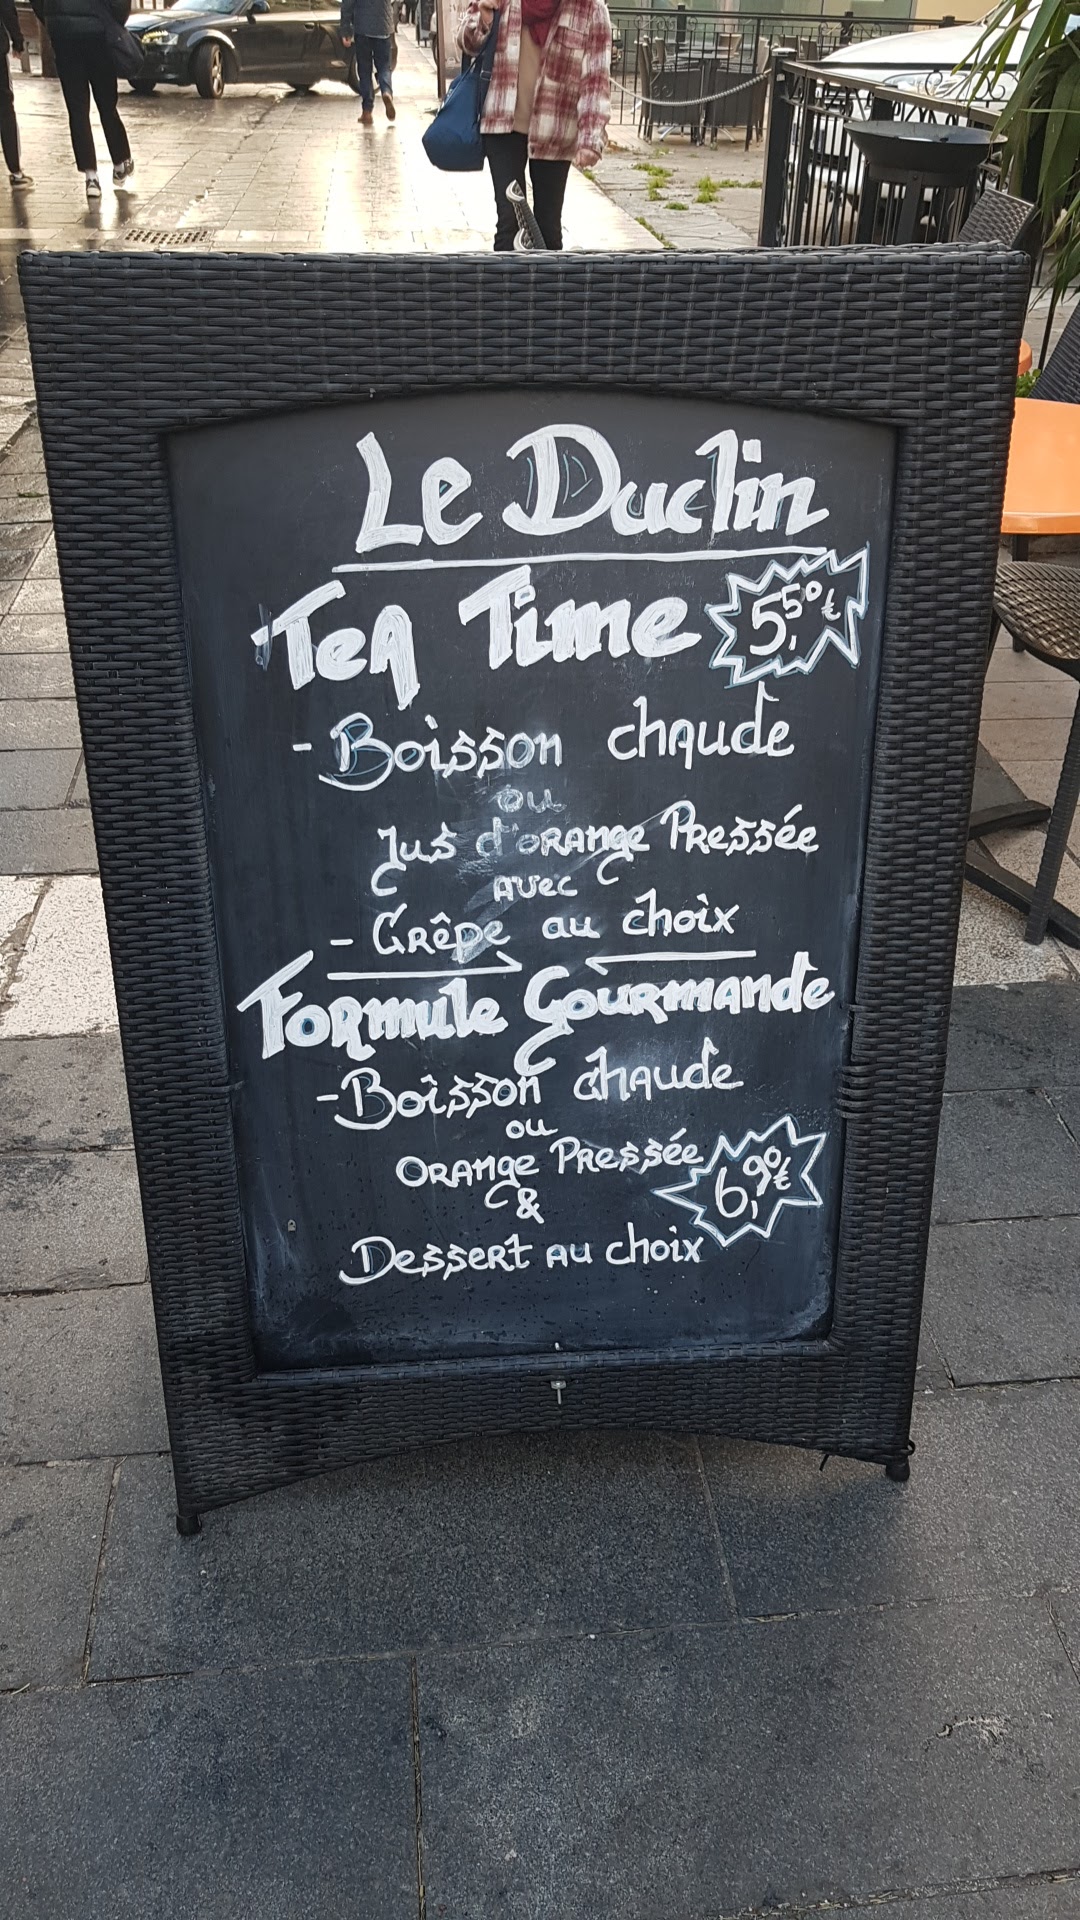 Le Duclin
Tea Time 5,50€
- Boisson chaude
ou
Jus d'orange Pressée
avec
- Crêpe au choix
Formule Gourmande
- Boisson chaude
ou
Orange Pressée
& 6,90€
Dessert au choix